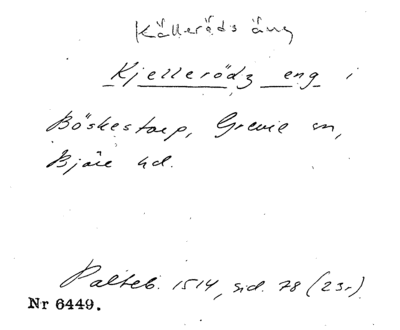 Källeröds äng
Kjellerödz eng i
Böskestorp, Grevie sn,
Bjäre hd.
Palteb. 1514, sid. 78 (23r).
Nr 6449.